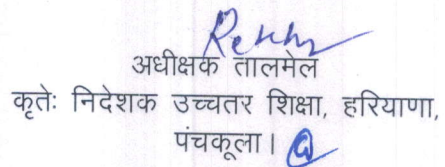 अधीक्षक तालमेल
कृतेः निदेशक उच्चतर शिक्षा, हरियाणा,
पंचकूला।